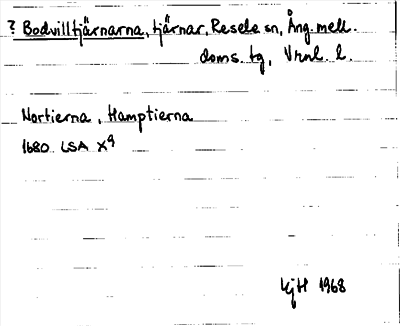 ? Bodvilltjärnarna, tjärnar, Resele sn, Ång. mell.
doms. tg, Vrnl. l.
Nortierna, Hamptierna
1680 LSA X9
KjH 1968